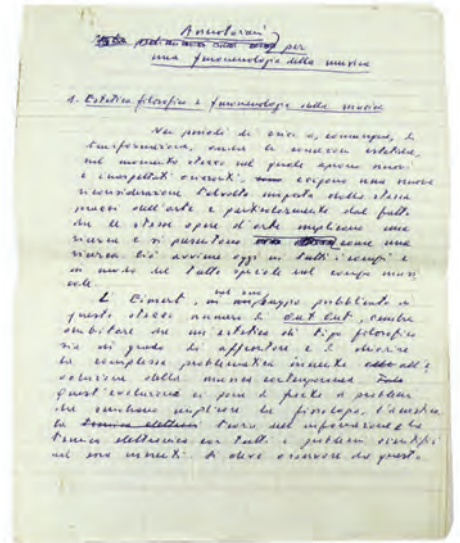 Annotazioni
per
una fenomenologia della musica
1. Estetica filosofica e fenomenologia della musica
Nei periodi di crisi o, comunque, di
trasformazione, anche la coscienza estetica,
nel momento stesso nel quale aprono nuovi
e inaspettati orizzonti, esigono una nuova
riconsiderazione talvolta imposta dalla stessa
prassi dell'arte e particolarmente dal fatto
che le stesse opere d'arte implicano una
ricerca e si presentano come una
ricerca. Ciò avviene oggi in tutti i campi e
in modo del tutto speciale nel campo musi
cale.
L. Cimert, nel suo saggio pubblicato in
questo stesso numero di aut aut, sembra
dubitare che un'estetica di tipo filosofico
sia in grado di affrontare e di chiarire
la complessa problematica inerente all'e
voluzione della musica contemporanea.
Quest'evoluzione ci pone di fronte a problemi
che sembrano implicare la fisiologia, l'acustica
la teoria dell'informazione e la
tecnica elettronica con tutti i problemi scientifici
ad essa inerenti. Si deve osservare che questa